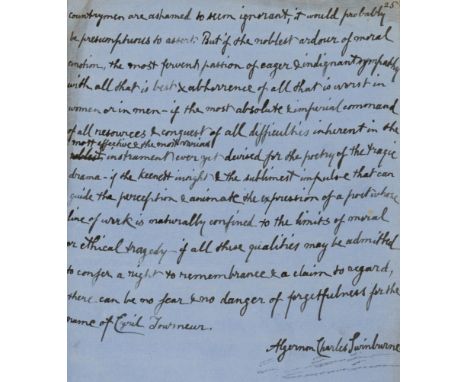 25
countrymen are ashamed to seem ignorant, it would probably
be presumptuous to assert. But if the noblest ardour of moral
emotion, the most fervent passion of eager & indignant sympathy
with all that is best & abhorrence of all that is worst in
women or in men - if the most absolute & imperial command
of all resources & conquest of all difficulties inherent in the
most effective & the most various
noblest instrument ever yet devised for the poetry of the tragic
drama - if the keenest insight & the sublimest impulse that can
guide the perception & animate the expression of a poet whose
line of work is naturally confined to the limits of moral
or ethical tragedy - if all these qualities may be admitted
to confer a right to remembrance & a claim to regard,
there can be no fear & no danger of forgetfulness for the
name of Cyril Tourneur.
Algernon Charles Swinburne